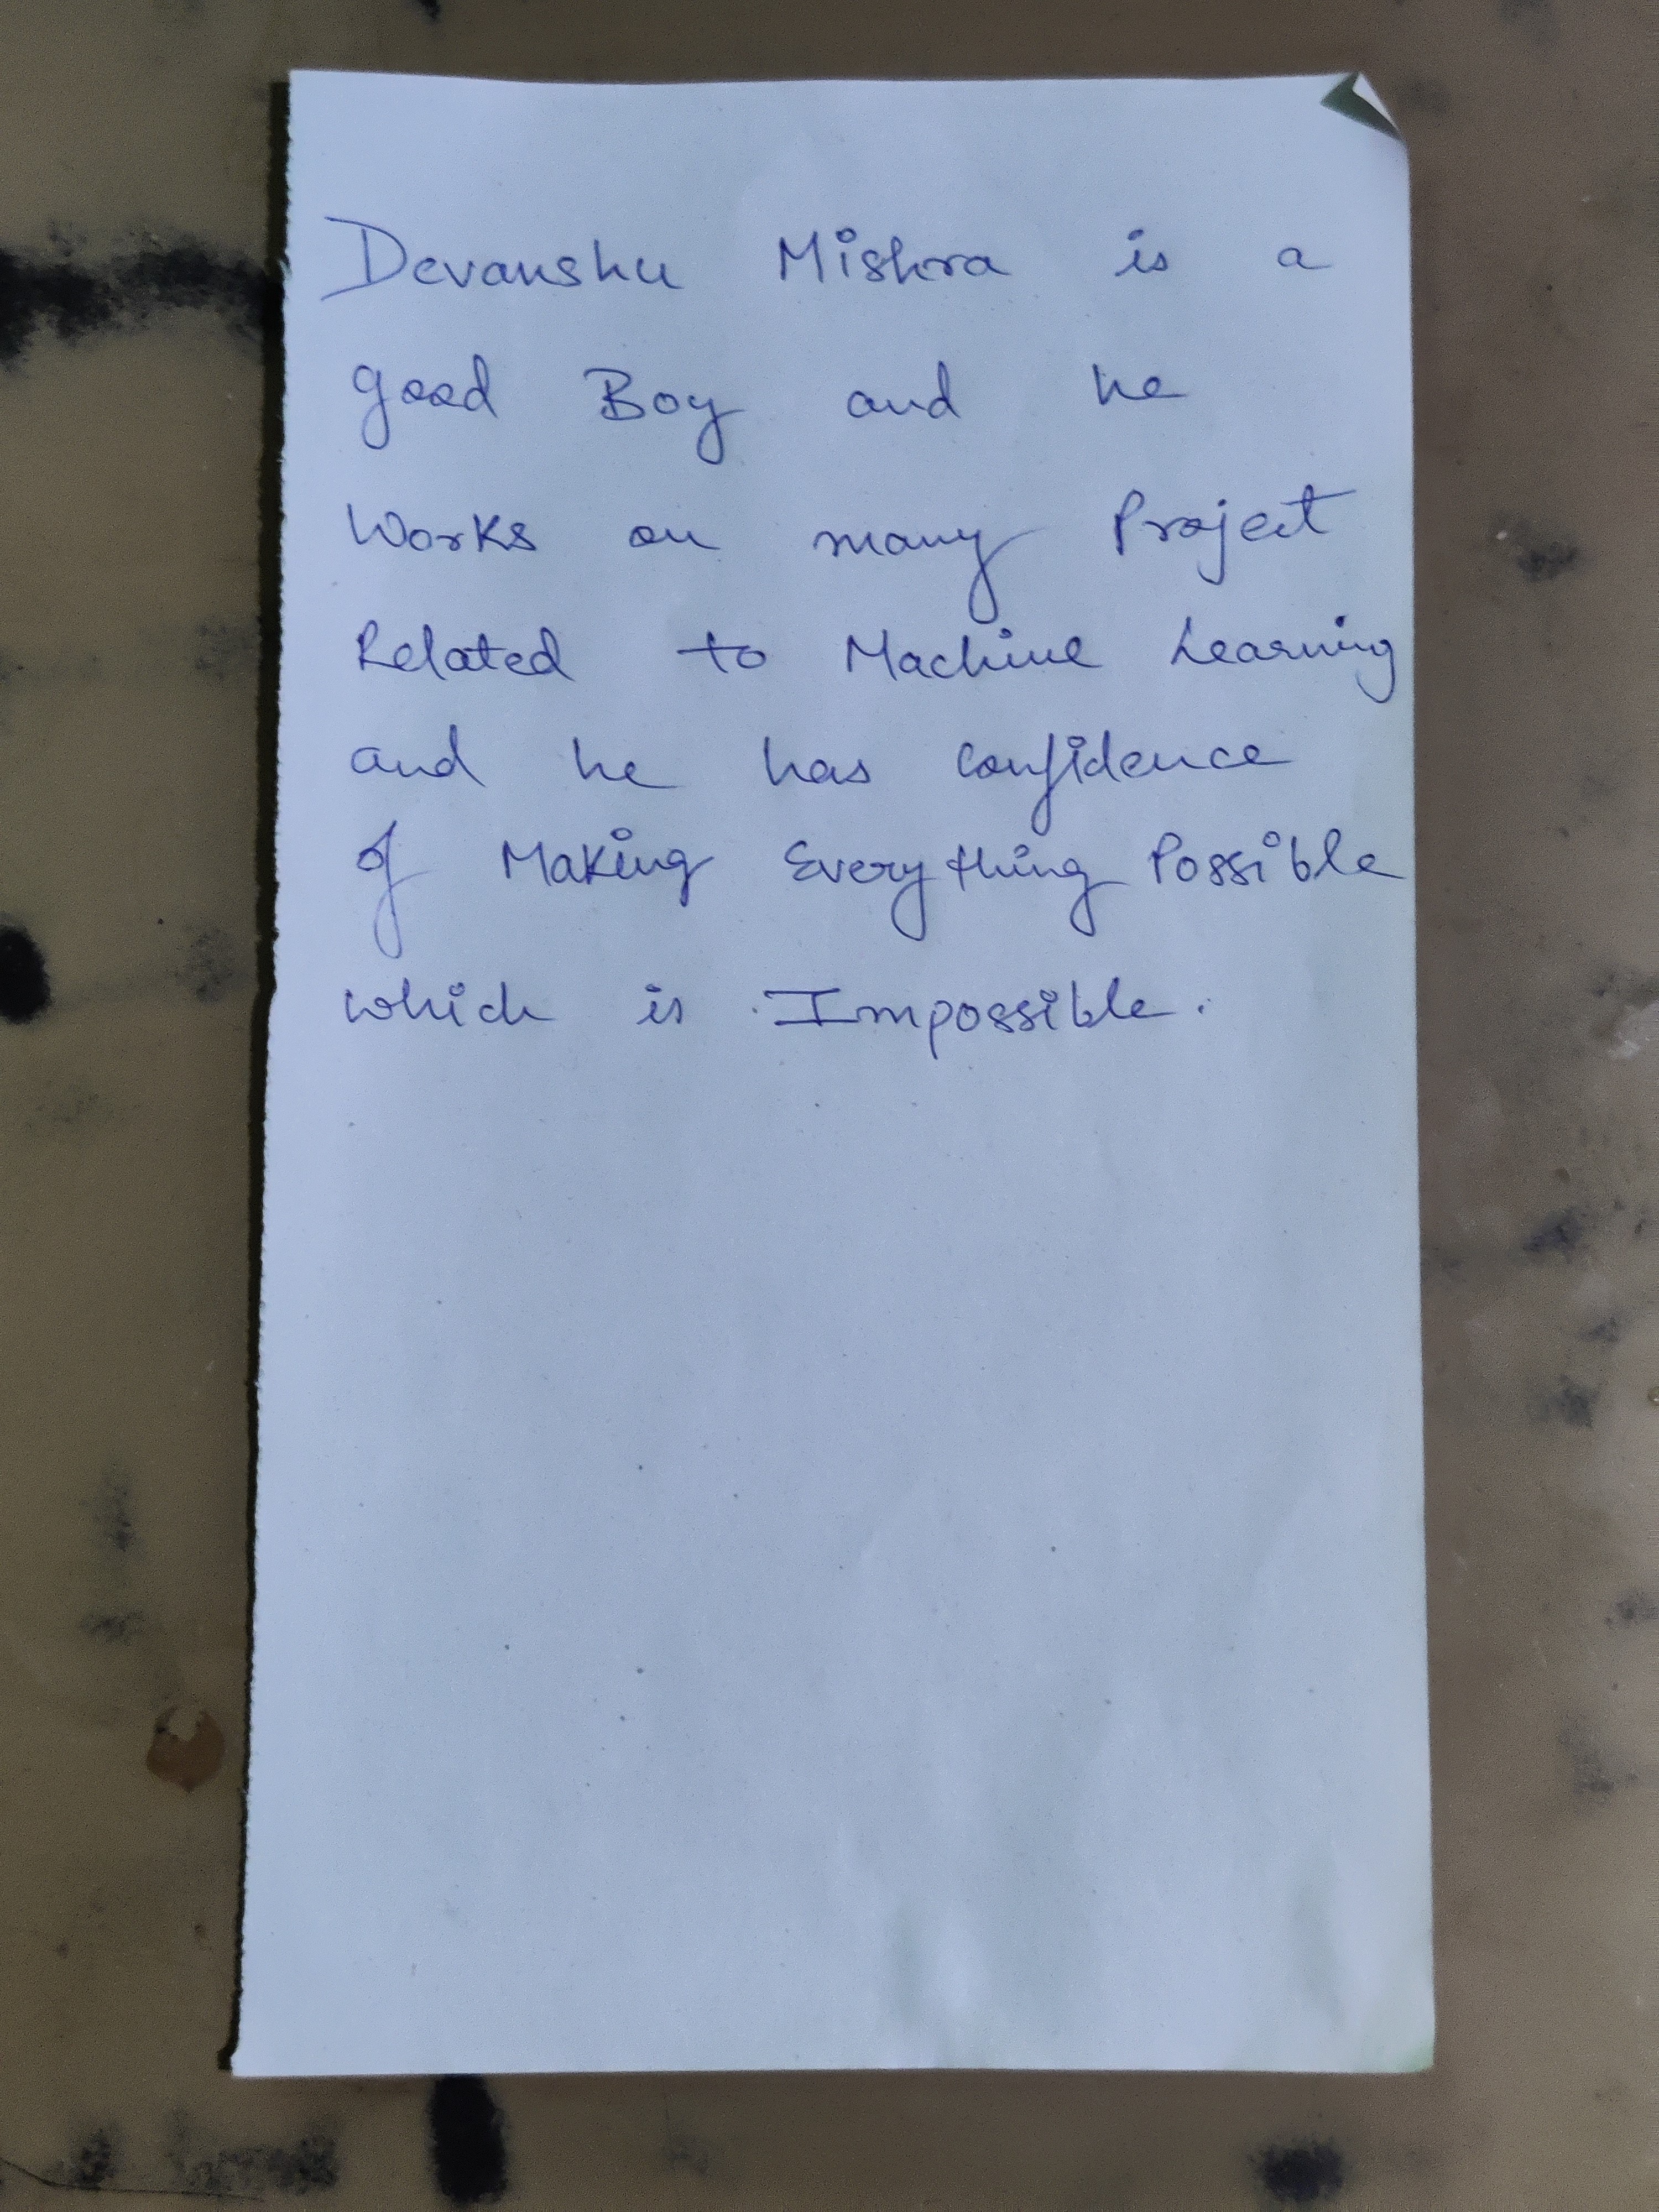 Devanshu Mishra is a
good Boy and he
Works on many Project
Related to Machine Learning
and he has confidence
of Making Everything Possible
which is Impossible.